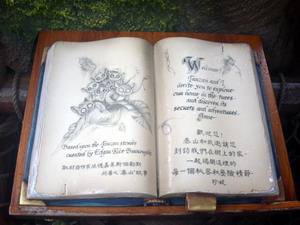 Based upon the Tarzan stories
created by Edgar Rice Burroughs
Welcome!
Tarzan and I
invite you to explore
our home in the trees
and discover its
secrets and adventures.
Jane
歡迎您!
泰山和我邀請您
到訪我們在樹上的家,
一起揭開這裡的
每一個秘密和歷險情節。
珍妮